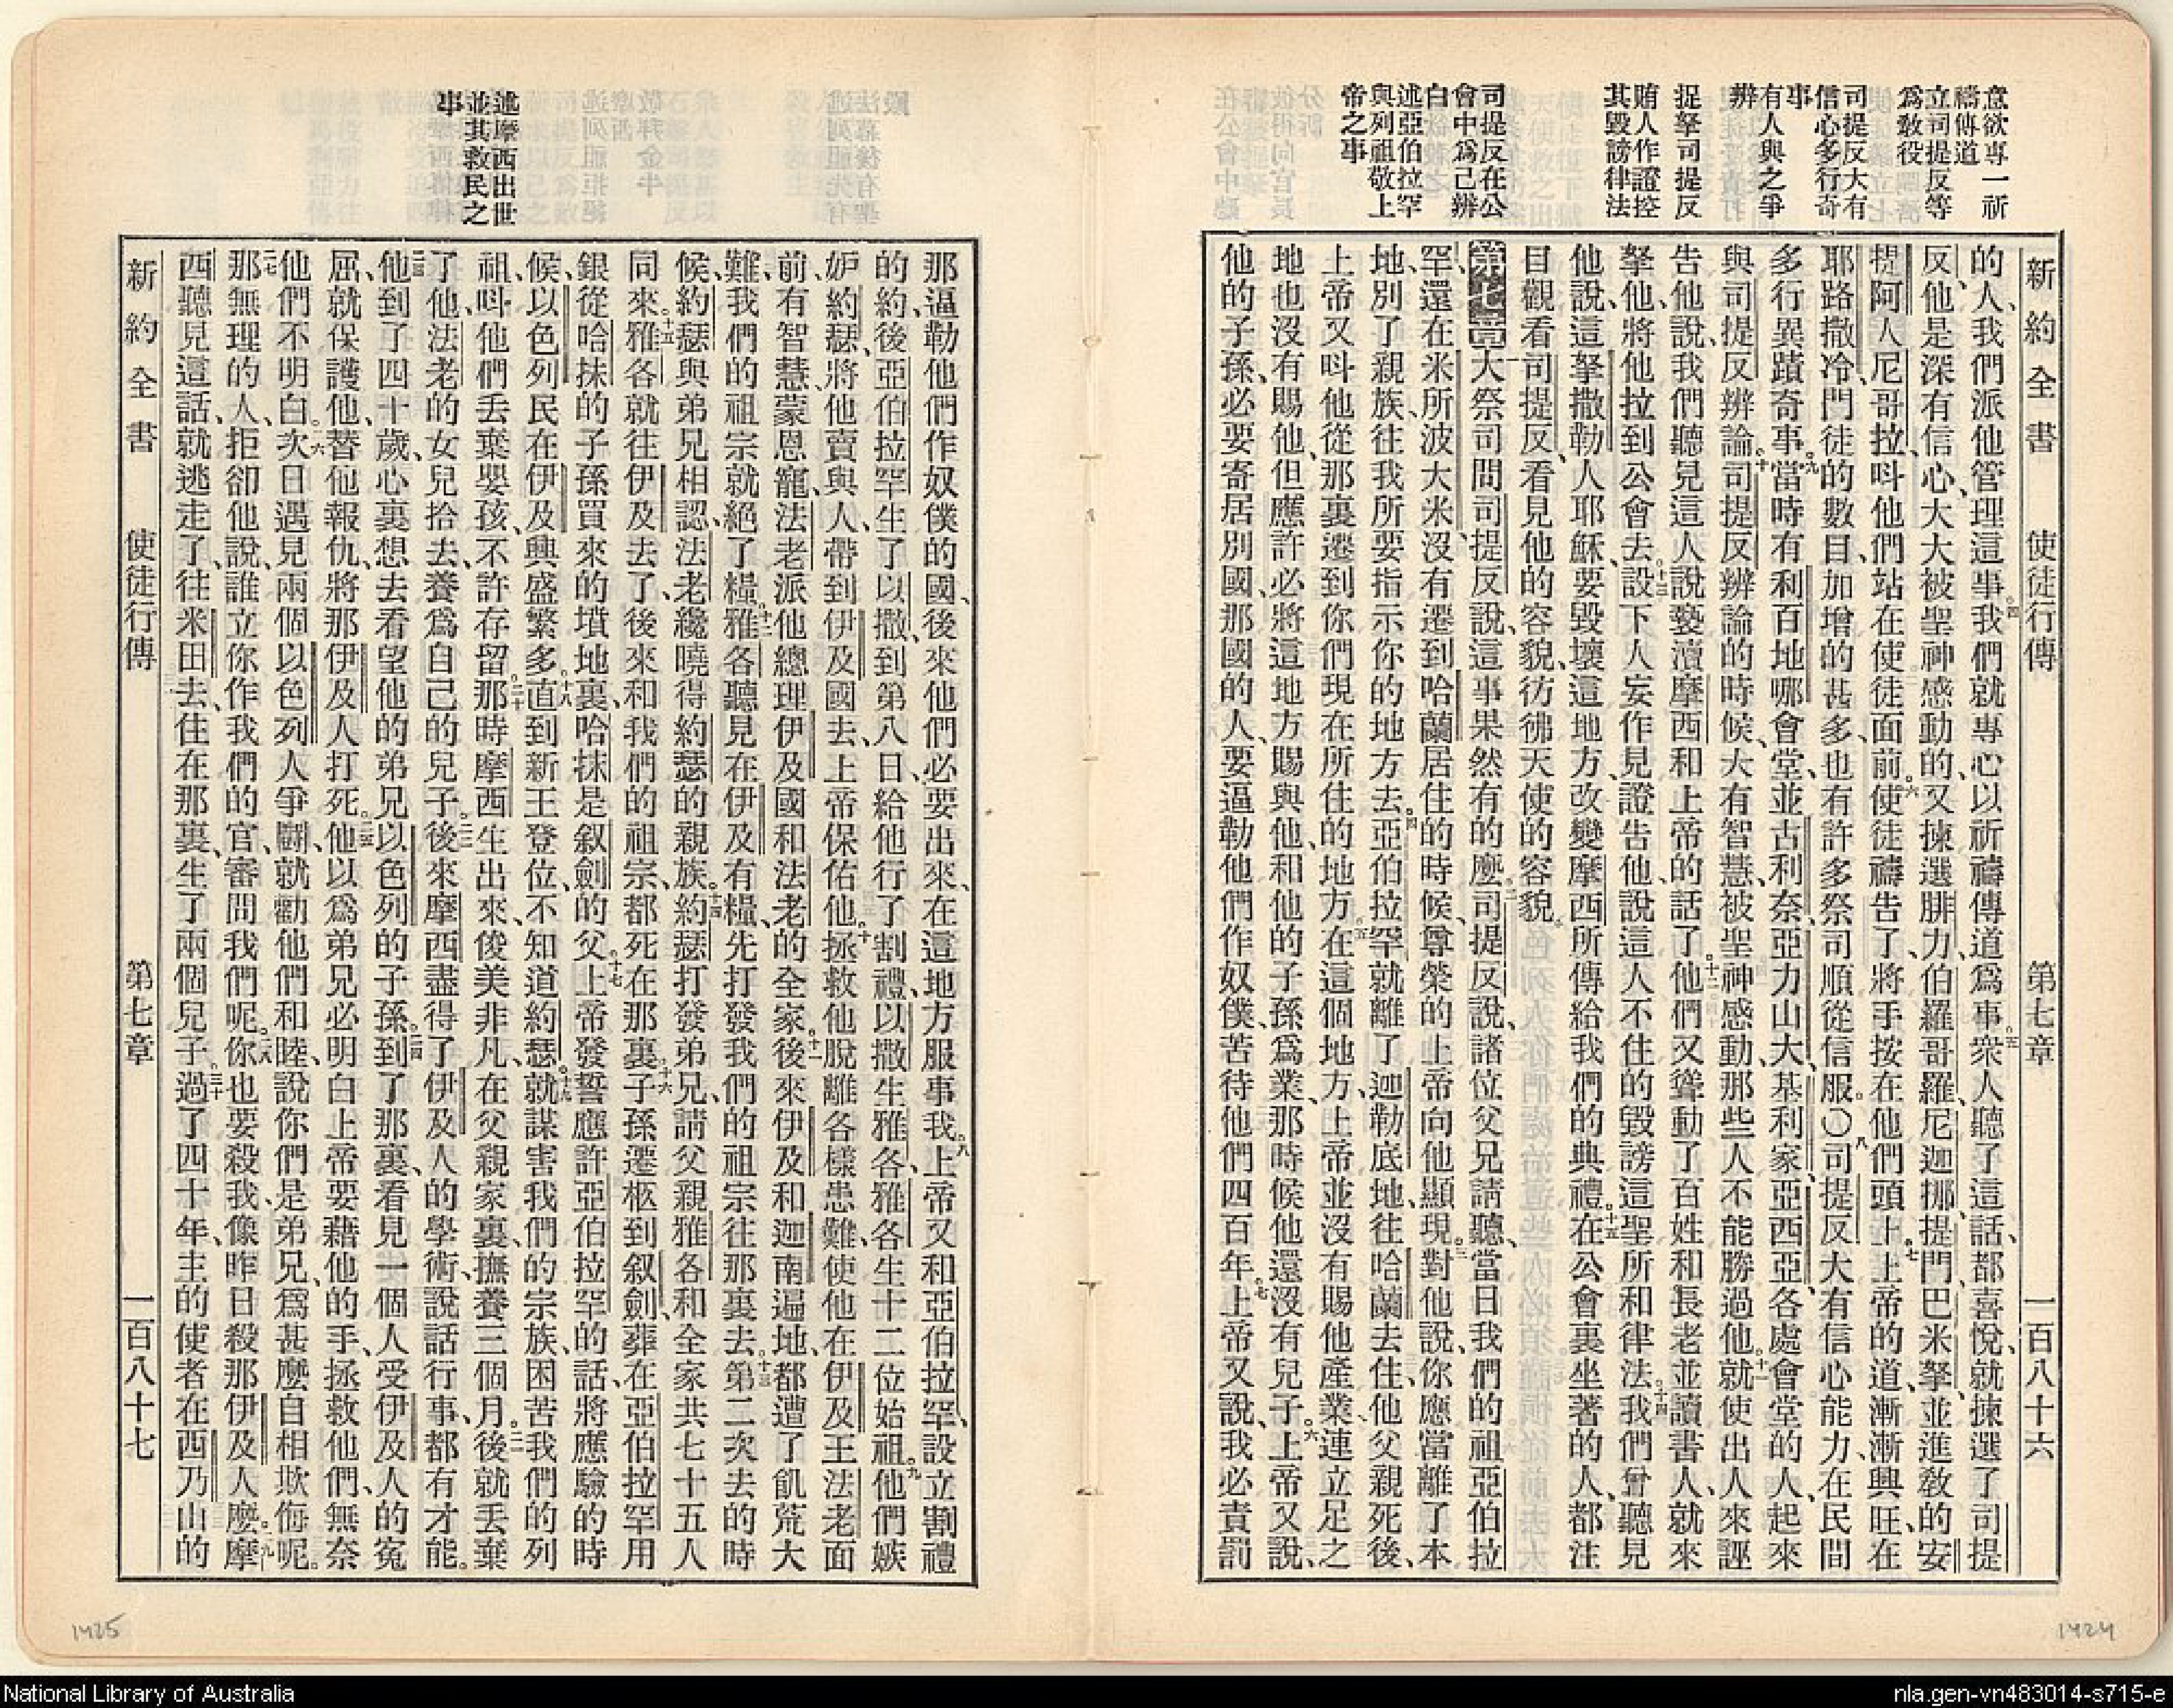 意欲專一祈
禱傳道
立司提反等
爲教役
司提反大有
信心多行奇
事
有人與之爭
辨
捉拏司提反
賄人作證控
其毀謗律法
司提反在公
會中爲己辨
白
述亞伯拉罕
與列祖敬上
帝之事
新約全書 使徒行傳 第七章 一百八十六
的人、我們派他管理這事。四我們就專心以祈禱傳道爲事。五衆人聽了這話、都喜悅、就揀選了司提
反、他是深有信心、大大被聖神感動的、又揀選腓力、伯羅哥羅、尼迦挪、提門、巴米拏、並進敎的安
提阿人尼哥拉、呌他們站在使徒面前。六使徒禱告了、將手按在他們頭上。七上帝的道漸漸興旺、在
耶路撒冷、門徒的數目加增的甚多、也有許多祭司順從信服。〇八司提反大有信心能力、在民間
多行異蹟奇事。九當時有利百地哪會堂、並古利奈、亞力山大、基利家、亞西亞、各處會堂的人、起來
與司提反辨論。十司提反辨論的時候、大有智慧、被聖神感動、那些人不能勝過他。十一就使出人來誣
告他說、我們聽見這人說褻瀆摩西和上帝的話了。十二他們又聳動了百姓和長老並讀書人、就來
拏他、將他拉到公會去。十三設下人妄作見證告他、說這人不住的毀謗這聖所和律法。十四我們曾聽見
他說、這拏撒勒人耶穌、要毀壞這地方、改變摩西所傳給我們的典禮。十五在公會裏坐著的人、都注
目觀看司提反、看見他的容貌、彷彿天使的容貌。
第七章 一大祭司問司提反說、這事果然有的麼。二司提反說、諸位父兄請聽、當日我們的祖亞伯拉
罕、還在米所波大米、沒有遷到哈蘭居住的時候、尊榮的上帝向他顯現。三對他說、你應當離了本
地、別了親族、往我所要指示你的地方去。四亞伯拉罕就離了迦勒底地、往哈蘭去住、他父親死後、
上帝又呌他從那裏遷到你們現在所住的地方。五在這個地方、上帝並沒有賜他產業、連立足之
地也沒有賜他、但應許必將這地方賜與他、和他的子孫爲業、那時候他還沒有兒子。六上帝又說、
他的子孫、必要寄居別國、那國的人、要逼勒他們作奴僕、苦待他們四百年。七上帝又說、我必責罰
述摩西出世
並其救民之
事
那逼勒他們作奴僕的國、後來他們必要出來、在這地方服事我。八上帝又和亞伯拉罕、設立割禮
的約、後亞伯拉罕生了以撒、到第八日、給他行了割禮、以撒生雅各、雅各生十二位始祖。九他們嫉
妒約瑟、將他賣與人、帶到伊及國去、上帝保佑他。十拯救他脫離各樣患難、使他在伊及王法老面
前、有智慧、蒙恩寵、法老派他總理伊及國和法老的全家。十一後來伊及和迦南遍地、都遭了飢荒大
難、我們的祖宗就絕了糧。十二雅各聽見在伊及有糧、先打發我們的祖宗往那裏去。十三第二次去的時
候、約瑟與弟兄相認、法老纔曉得約瑟的親族。十四約瑟打發弟兄、請父親雅各和全家共七十五人
同來。十五雅各就往伊及去了、後來和我們的祖宗、都死在那裏。十六子孫遷柩到叙劍、葬在亞伯拉罕用
銀從哈抹的子孫買來的墳地裏、哈抹是叙劍的父。十七上帝發誓應許亞伯拉罕的話、將應驗的時
候、以色列民在伊及興盛繁多。十八直到新王登位、不知道約瑟。十九就謀害我們的宗族、困苦我們的列
祖、呌他們丢棄嬰孩、不許存留。二十那時摩西生出來、俊美非凡、在父親家裏、撫養三個月。二一後就丢棄
了他、法老的女兒拾去、養爲自己的兒子。二二後來摩西盡得了伊及人的學術、說話行事、都有才能。
二三他到了四十歲、心裏想去看望他的弟兄以色列的子孫。二四到了那裏、看見一個人受伊及人的寃
屈、就保護他、替他報仇、將那伊及人打死。二五他以爲弟兄必明白上帝要藉他的手、拯救他們、無奈
他們不明白。二六次日遇見兩個以色列人爭鬭、就勸他們和睦、說你們是弟兄、爲甚麼自相欺侮呢。
二七那無理的人、拒卻他說、誰立你作我們的官、審問我們呢。二八你也要殺我、像昨日殺那伊及人麼。二九摩
西聽見這話、就逃走了、往米田去、住在那裏、生了兩個兒子。三十過了四十年、主的使者在西乃山的
新約全書 使徒行傳 第七章 一百八十七
1425
1424
National Library of Australia
nla.gen-vn483014-s715-e